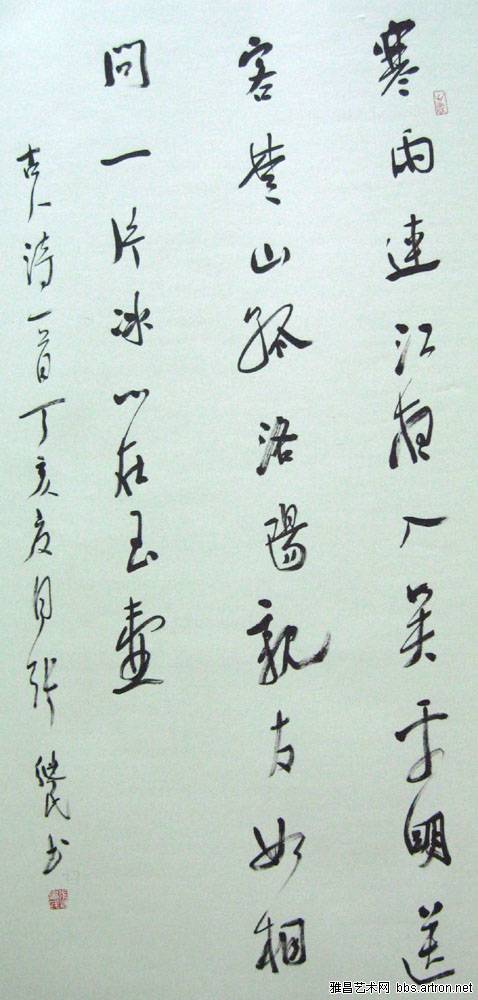 寒雨連江夜入吴平明送
客楚山孤洛陽親友如相
問一片冰心在玉壺
古人詩一首丁亥夏月张民书
雅昌艺术网 bbs.artron.net